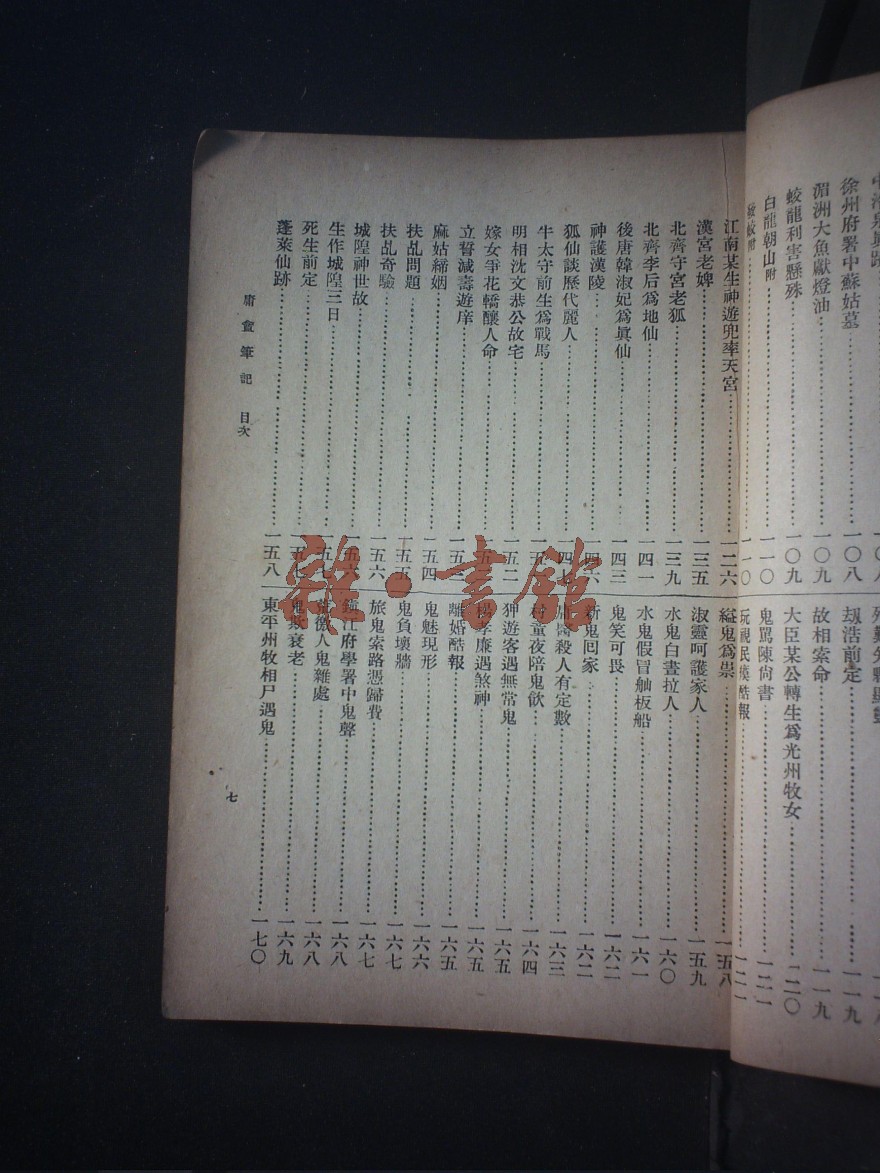 徐州府署中蘇姑墓……一〇八
湄洲大魚獻燈油……一〇九
蛟龍利害懸殊……一〇九
白龍朝山附……一一〇
劫浩前定……一一九
故相索命……一一九
大臣某公轉生爲光州牧女……一二〇
鬼罵陳尙書……一二一
玩視民瘼酷報……一二一
江南某生神遊兜率天宮……一二六
漢宮老婢……一三五
北齊守宮老狐……一三九
北齊李后爲地仙……一四一
後唐韓淑妃爲眞仙……一四三
神護漢陵……一四六
狐仙談歷代麗人……一四七
牛太守前生爲戰馬……一五
明相沈文恭公故宅……一五二
嫁女爭花轎釀人命……一五
立誓減壽遊庠……一五
麻姑締姻……一五四
扶乩問題……一五五
扶乩奇驗……一五六
城隍神世故……一五六
生作城隍三日……一五七
死生前定……一五七
蓬萊仙跡……一五八
縊鬼爲祟……一五八
淑靈呵護家人……一五九
水鬼白晝拉人……一六〇
水鬼假冒舢板船……一六一
鬼笑可畏……一六二
新鬼回家……一六二
庸醫殺人有定數……一六三
村童夜陪鬼飲……一六四
狎遊客遇無常鬼……一六五
楊孝廉遇煞神……一六五
離婚酷報……一六五
鬼魅現形……一六六
鬼負壞牆……一六七
旅鬼索路憑歸費……一六七
鎭江府學署中鬼聲……一六八
荒徼人鬼雜處……一六八
鬼欺衰老……一六九
東平州牧相尸遇鬼……一七〇
庸盦筆記 目次
七
雜·書館